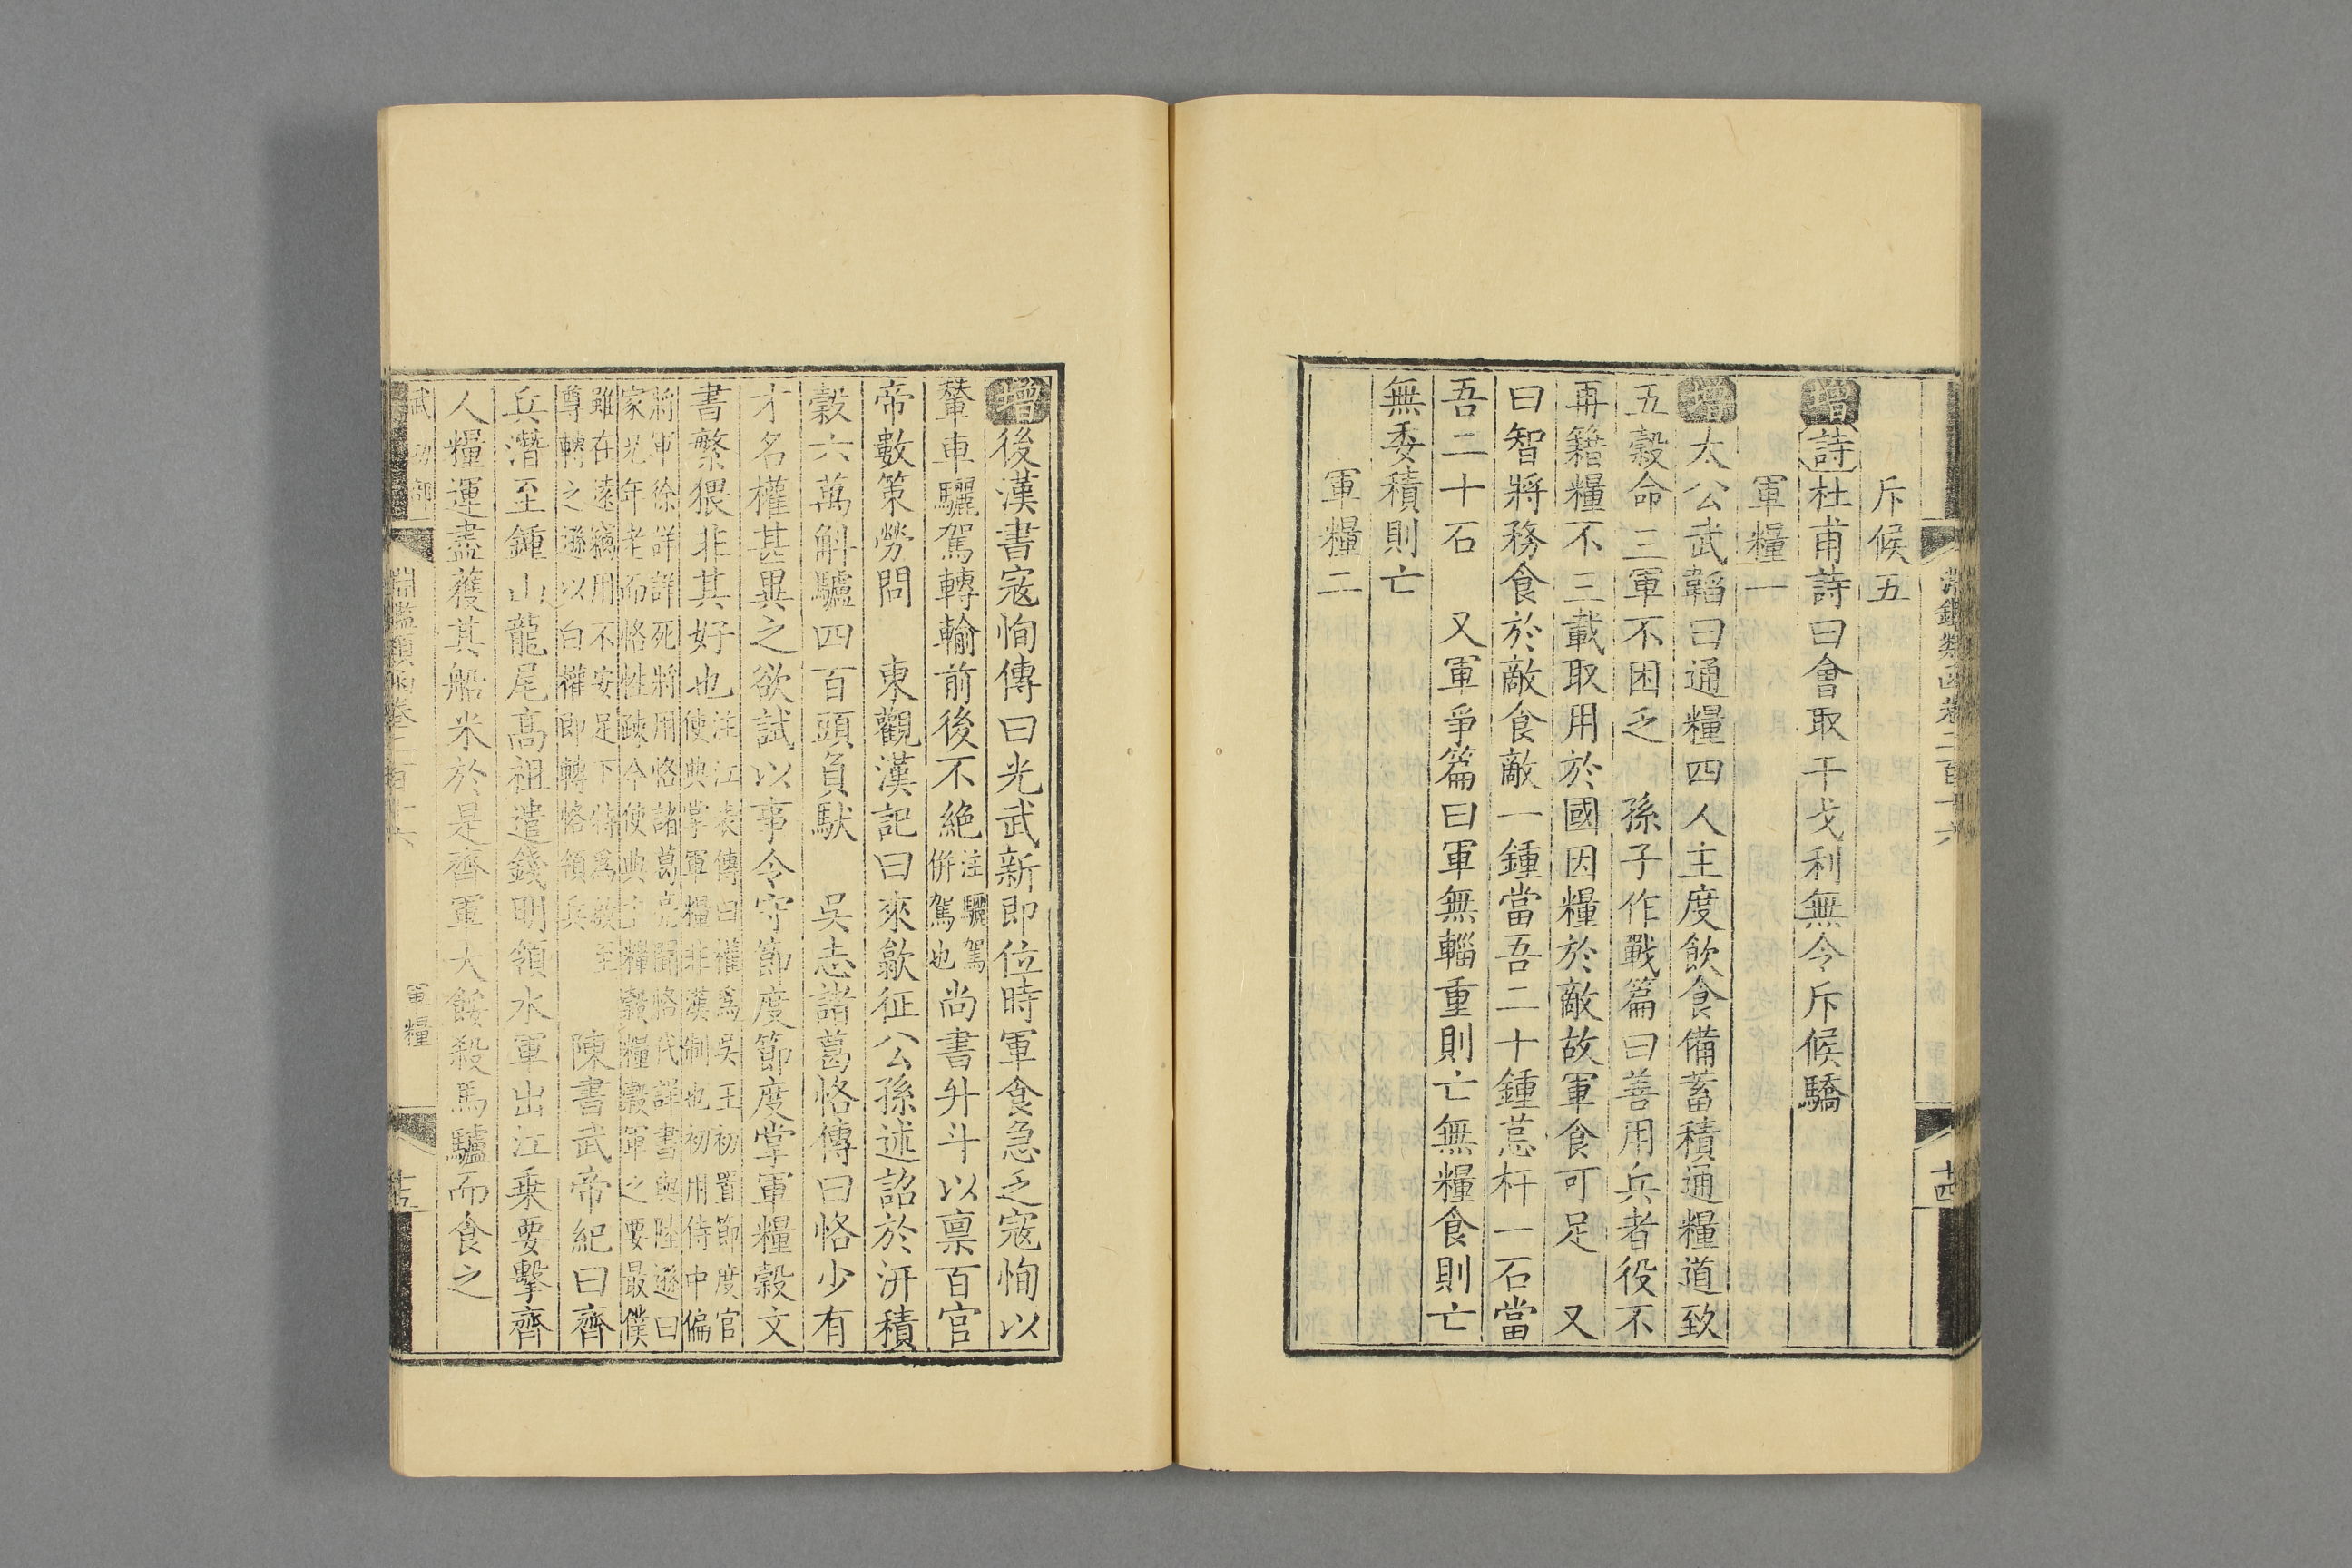 斥候五
增詩杜甫詩曰會取干戈利無令斥候驕
軍糧一
增太公武韜曰通糧四人主度飲食備蓄積通糧道致
五穀命三軍不困乏　孫子作戰篇曰善用兵者役不
再籍糧不三載取用於國因糧於敵故軍食可足　又
曰智將務食於敵食敵一鍾當吾二十鍾䓈杆一石當
吾二十石　又軍爭篇曰軍無輜重則亡無糧食則亡
無委積則亡
軍糧二
淵鑑類函卷二百十六
十四
增後漢書寇恂傳曰光武新即位時軍食急乏寇恂以
輦車驪駕轉輸前後不絕注驪駕併駕也尚書升斗以稟百官
帝數策勞問　東觀漢記曰來歙征公孫述詔於汧積
穀六萬斛驢四百頭負馱　吳志諸葛恪傳曰恪少有
才名權甚異之欲試以事令守節度節度掌軍糧穀文
書繁猥非其好也注江表傳曰權為吳王初置節度官使典掌軍糧非漢制也初用侍中偏
將軍徐詳詳死將用恪諸葛亮聞恪代詳書與陸遜曰家兄年老而恪性疎今使典主糧穀糧穀軍之要最僕
雖在遠竊用不安足下特為啟至尊轉之遜以白權即轉恪領兵　陳書武帝紀曰齊
兵潛至鍾山龍尾高祖遣錢明領水軍出江乗要擊齊
人糧運盡獲其船米於是齊軍大餒殺馬驢而食之
武功部
淵鑑類函卷二百十六
軍糧
十五